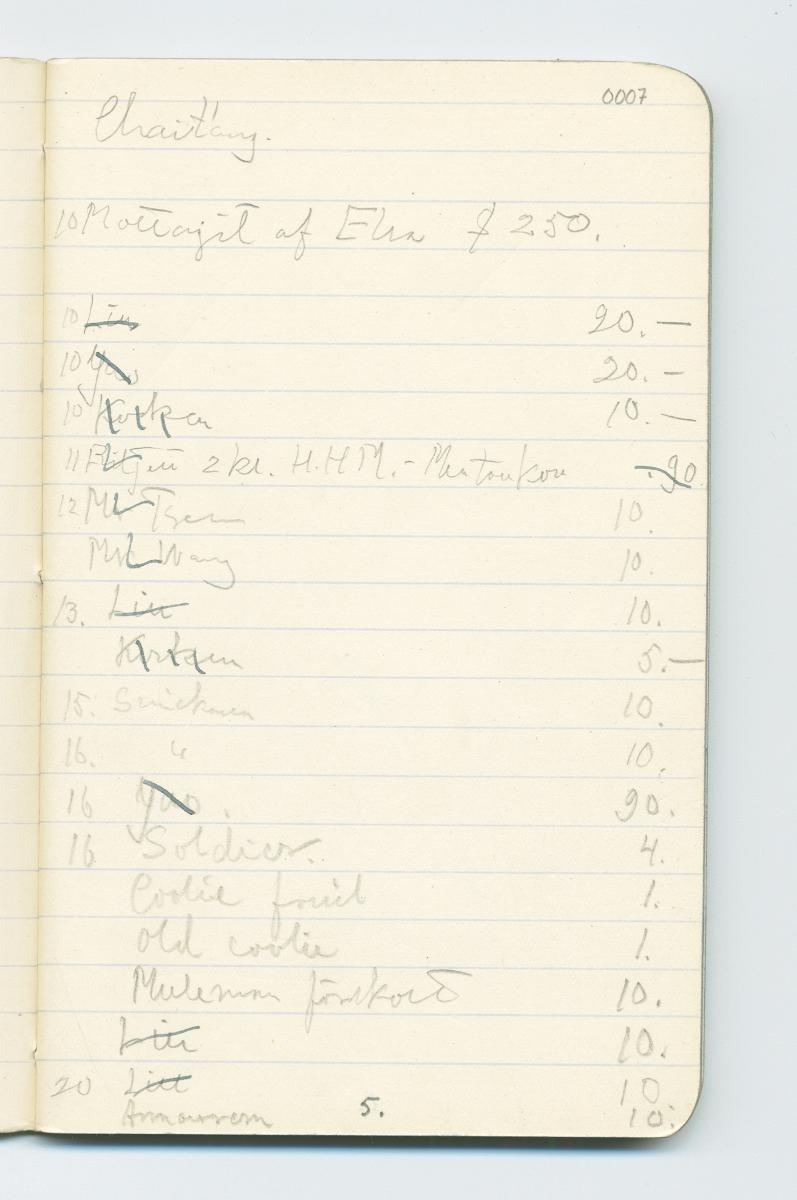 0007
Chait'ang.
10 Mottagit af Elsa $ 250.
10 Liu 20.—
10 Yao 20.—
10 Kocken 10.—
11 2 kl. H.H.M.- .90
12 Mr Tsen 10.
Mr Wang 10.
13. Liu 10.
Kocken 5.—
15. Snickaren 10.
16. " 10.
16 Yao. 90.
16 Soldier. 4.
Coolie fruit 1.
Old coolie 1.
Muleman förskott 10.
Liu 10.
20 Liu 10
10.
5.